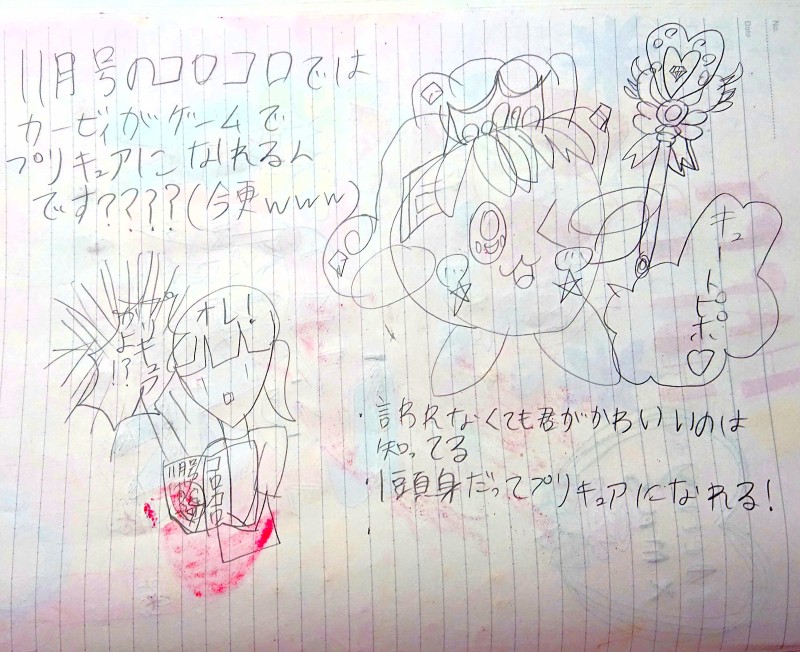 11月号のコロコロでは
カービィがゲームで
プリキュアになれるん
です????(今更www)
キュートピポ♡
オレ!
がプリキュア
かよ!?
11月号
コロコロ
・言われなくても君がかわいいのは
知ってる
・1頭身だってプリキュアになれる!
No.
Date